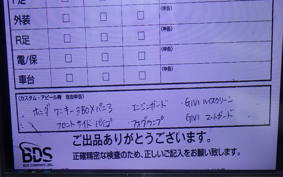 外装 □ □ □ □ (申告)
R足 □ □ □ □ (申告)
電/保 □ □ □ □ (申告)
車台 □ □ □ □ (申告)
(カスタム・アピール欄 自由申告)
ホンダ ワーキー3BOX パニア エンジンガード ・GIVI ハイスクリーン
フロントサイドパイプ フォグランプ ・GIVI ヒートガード
ご出品ありがとうございます。
正確精密な検査のため、正しいご記入をお願い致します。
BDS